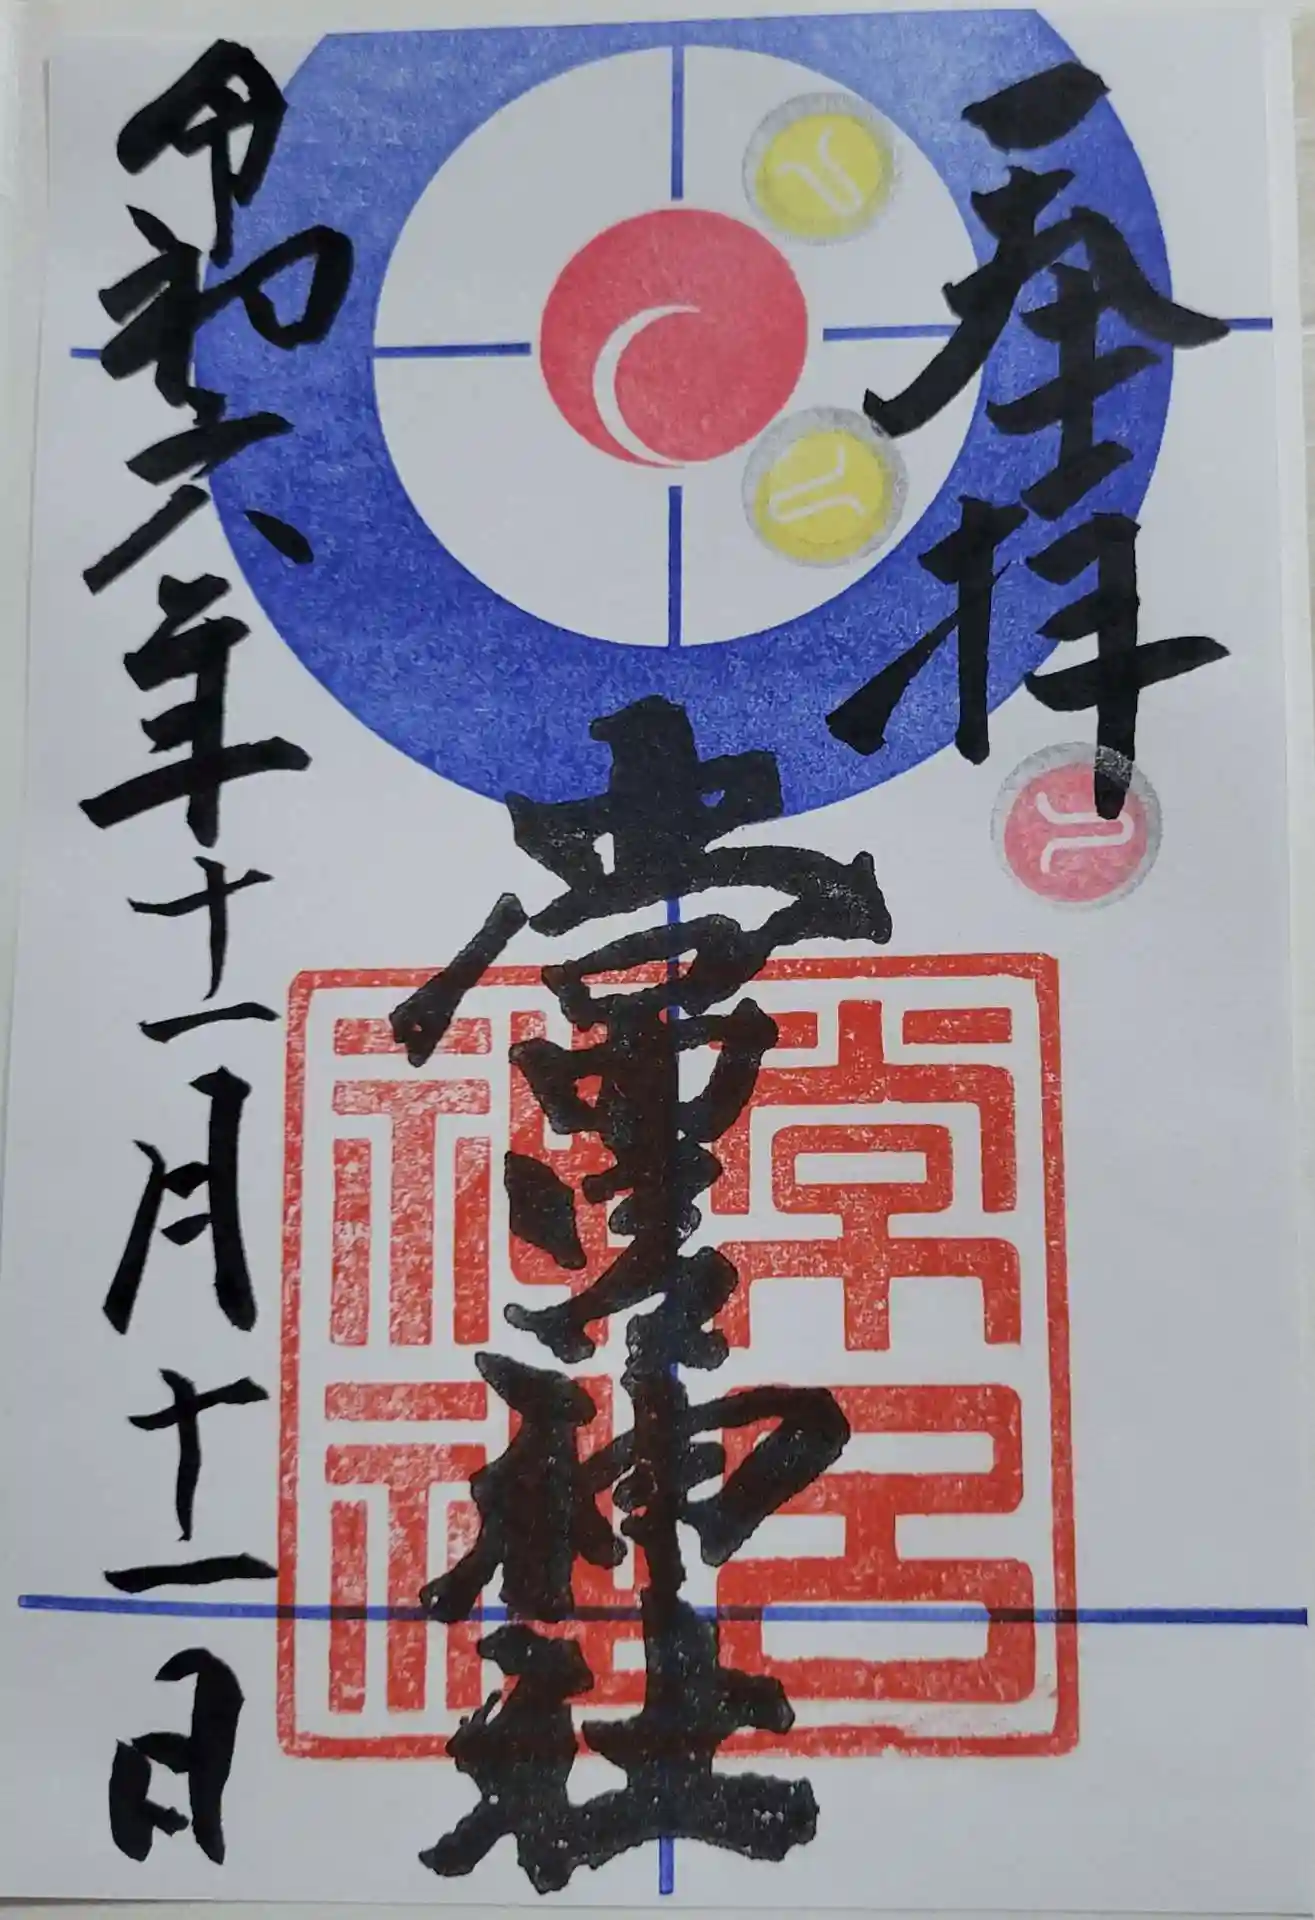 奉拝
常呂神社
常呂
神社
令和六年十一月十一日